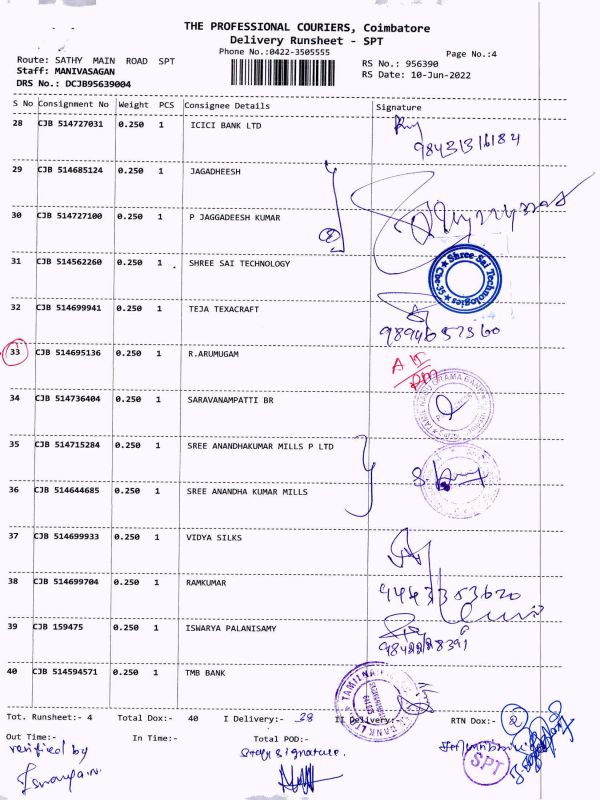 THE PROFESSIONAL COURIERS, Coimbatore
Delivery Runsheet - SPT
Phone No.:0422-3505555
Page No.:4
Route: SATHY MAIN ROAD SPT
RS No.: 956390
Staff: MANIVASAGAN
RS Date: 10-Jun-2022
DRS No.: DCJB95639004
S No Consignment No Weight PCS Consignee Details Signature
28 CJB 514727031 0.250 1 ICICI BANK LTD
9843131684
29 CJB 514685124 0.250 1 JAGADHEESH
30 CJB 514727100 0.250 1 P JAGGADEESH KUMAR
31 CJB 514562260 0.250 1 SHREE SAI TECHNOLOGY
Shree-Sai Technologies
32 CJB 514699941 0.250 1 TEJA TEXACRAFT
33 CJB 514695136 0.250 1 R.ARUMUGAM
34 CJB 514736404 0.250 1 SARAVANAMPATTI BR
35 CJB 514715284 0.250 1 SREE ANANDHAKUMAR MILLS P LTD
36 CJB 514644685 0.250 1 SREE ANANDHA KUMAR MILLS
37 CJB 514699933 0.250 1 VIDYA SILKS
38 CJB 514699704 0.250 1 RAMKUMAR
39 CJB 159475 0.250 1 ISWARYA PALANISAMY
40 CJB 514594571 0.250 1 TMB BANK
Tot. Runsheet:- 4 Total Dox:- 40 I Delivery:- 38 II Delivery:- RTN Dox:- 2
Out Time:- In Time:- Total POD:-
verified by
Staff signature.
SPT